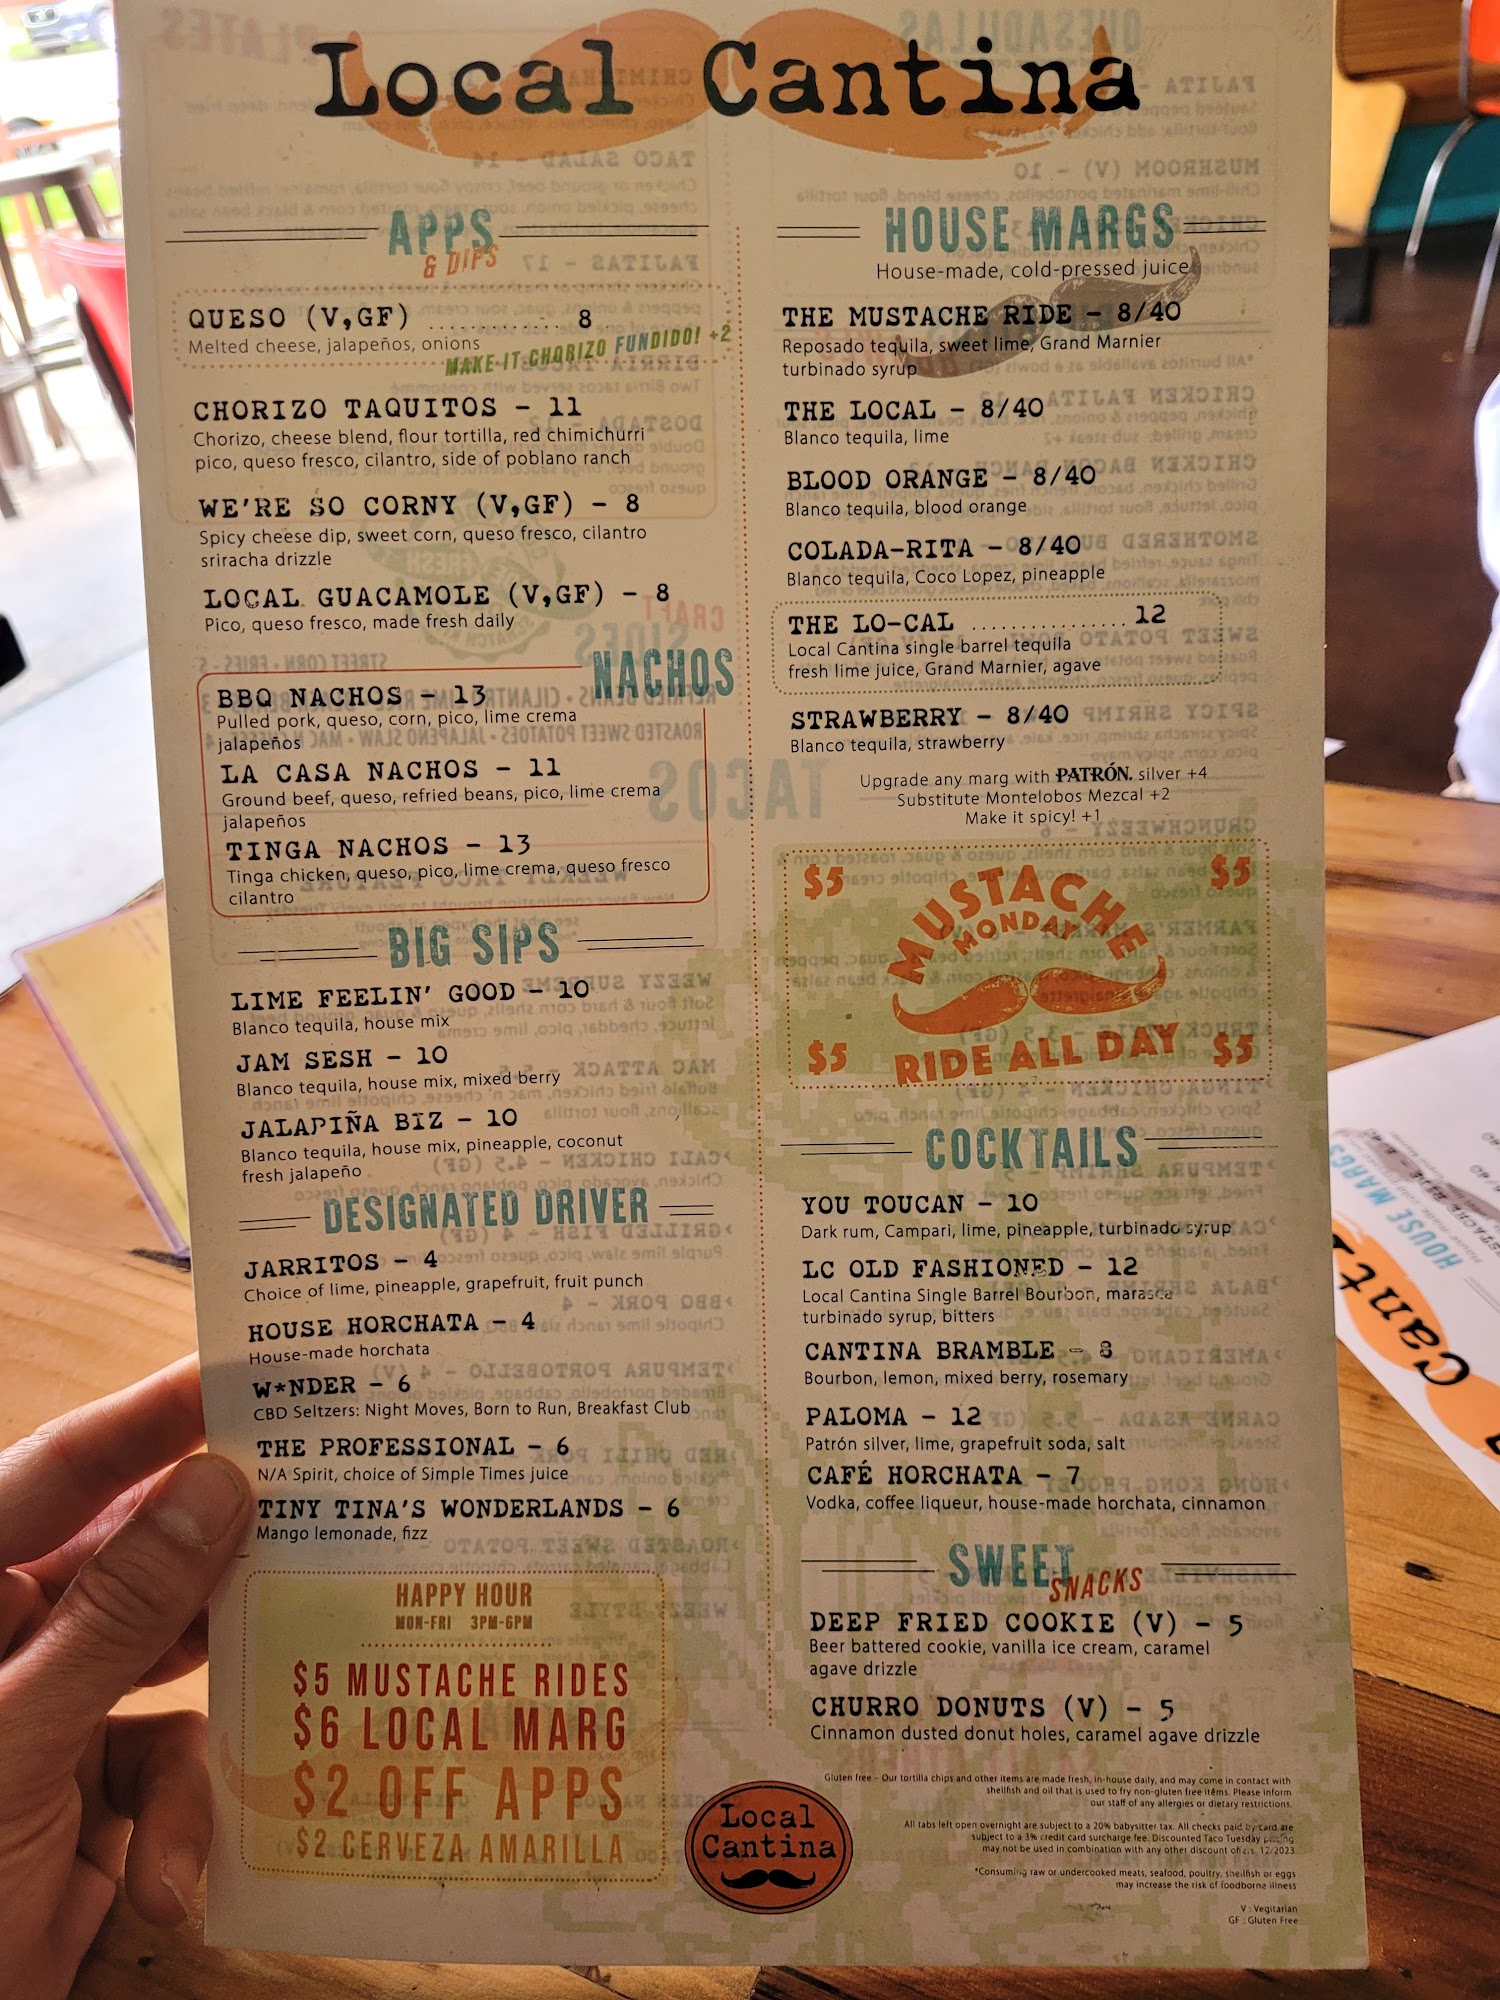 Local Cantina
APPS
& DIPS
QUESO (V,GF) ............. 8
Melted cheese, jalapeños, onions
MAKE IT CHORIZO FUNDIDO! +2
CHORIZO TAQUITOS – 11
Chorizo, cheese blend, flour tortilla, red chimichurri
pico, queso fresco, cilantro, side of poblano ranch
WE'RE SO CORNY (V,GF) – 8
Spicy cheese dip, sweet corn, queso fresco, cilantro
sriracha drizzle
LOCAL GUACAMOLE (V,GF) – 8
Pico, queso fresco, made fresh daily
NACHOS
BBQ NACHOS – 13
Pulled pork, queso, corn, pico, lime crema
jalapeños
LA CASA NACHOS – 11
Ground beef, queso, refried beans, pico, lime crema
jalapeños
TINGA NACHOS – 13
Tinga chicken, queso, pico, lime crema, queso fresco
cilantro
BIG SIPS
LIME FEELIN' GOOD – 10
Blanco tequila, house mix
JAM SESH – 10
Blanco tequila, house mix, mixed berry
JALAPIÑA BIZ – 10
Blanco tequila, house mix, pineapple, coconut
fresh jalapeño
DESIGNATED DRIVER
JARRITOS – 4
Choice of lime, pineapple, grapefruit, fruit punch
HOUSE HORCHATA – 4
House-made horchata
W*NDER – 6
CBD Seltzers: Night Moves, Born to Run, Breakfast Club
THE PROFESSIONAL – 6
N/A Spirit, choice of Simple Times juice
TINY TINA'S WONDERLANDS – 6
Mango lemonade, fizz
HAPPY HOUR
MON-FRI 3PM-6PM
$5 MUSTACHE RIDES
$6 LOCAL MARG
$2 OFF APPS
$2 CERVEZA AMARILLA
HOUSE MARGS
House-made, cold-pressed juice
THE MUSTACHE RIDE – 8/40
Reposado tequila, sweet lime, Grand Marnier
turbinado syrup
THE LOCAL – 8/40
Blanco tequila, lime
BLOOD ORANGE – 8/40
Blanco tequila, blood orange
COLADA-RITA – 8/40
Blanco tequila, Coco Lopez, pineapple
THE LO-CAL ............... 12
Local Cantina single barrel tequila
fresh lime juice, Grand Marnier, agave
STRAWBERRY – 8/40
Blanco tequila, strawberry
Upgrade any marg with PATRÓN. silver +4
Substitute Montelobos Mezcal +2
Make it spicy! +1
$5 $5
MUSTACHE
MONDAY
$5 RIDE ALL DAY $5
COCKTAILS
YOU TOUCAN – 10
Dark rum, Campari, lime, pineapple, turbinado syrup
LC OLD FASHIONED – 12
Local Cantina Single Barrel Bourbon, marasca
turbinado syrup, bitters
CANTINA BRAMBLE – 8
Bourbon, lemon, mixed berry, rosemary
PALOMA – 12
Patrón silver, lime, grapefruit soda, salt
CAFÉ HORCHATA – 7
Vodka, coffee liqueur, house-made horchata, cinnamon
SWEET
SNACKS
DEEP FRIED COOKIE (V) – 5
Beer battered cookie, vanilla ice cream, caramel
agave drizzle
CHURRO DONUTS (V) – 5
Cinnamon dusted donut holes, caramel agave drizzle
Gluten free - Our tortilla chips and other items are made fresh, in-house daily, and may come in contact with
shellfish and oil that is used to fry non-gluten free items. Please inform
our staff of any allergies or dietary restrictions.
All tabs left open overnight are subject to a 20% babysitter tax. All checks paid by card are
subject to a 3% credit card surcharge fee. Discounted Taco Tuesday pricing
may not be used in combination with any other discount offers. 12/2023
*Consuming raw or undercooked meats, seafood, poultry, shellfish or eggs
may increase the risk of foodborne illness
V : Vegitarian
GF : Gluten Free
Local
Cantina
HOUSE MARGS